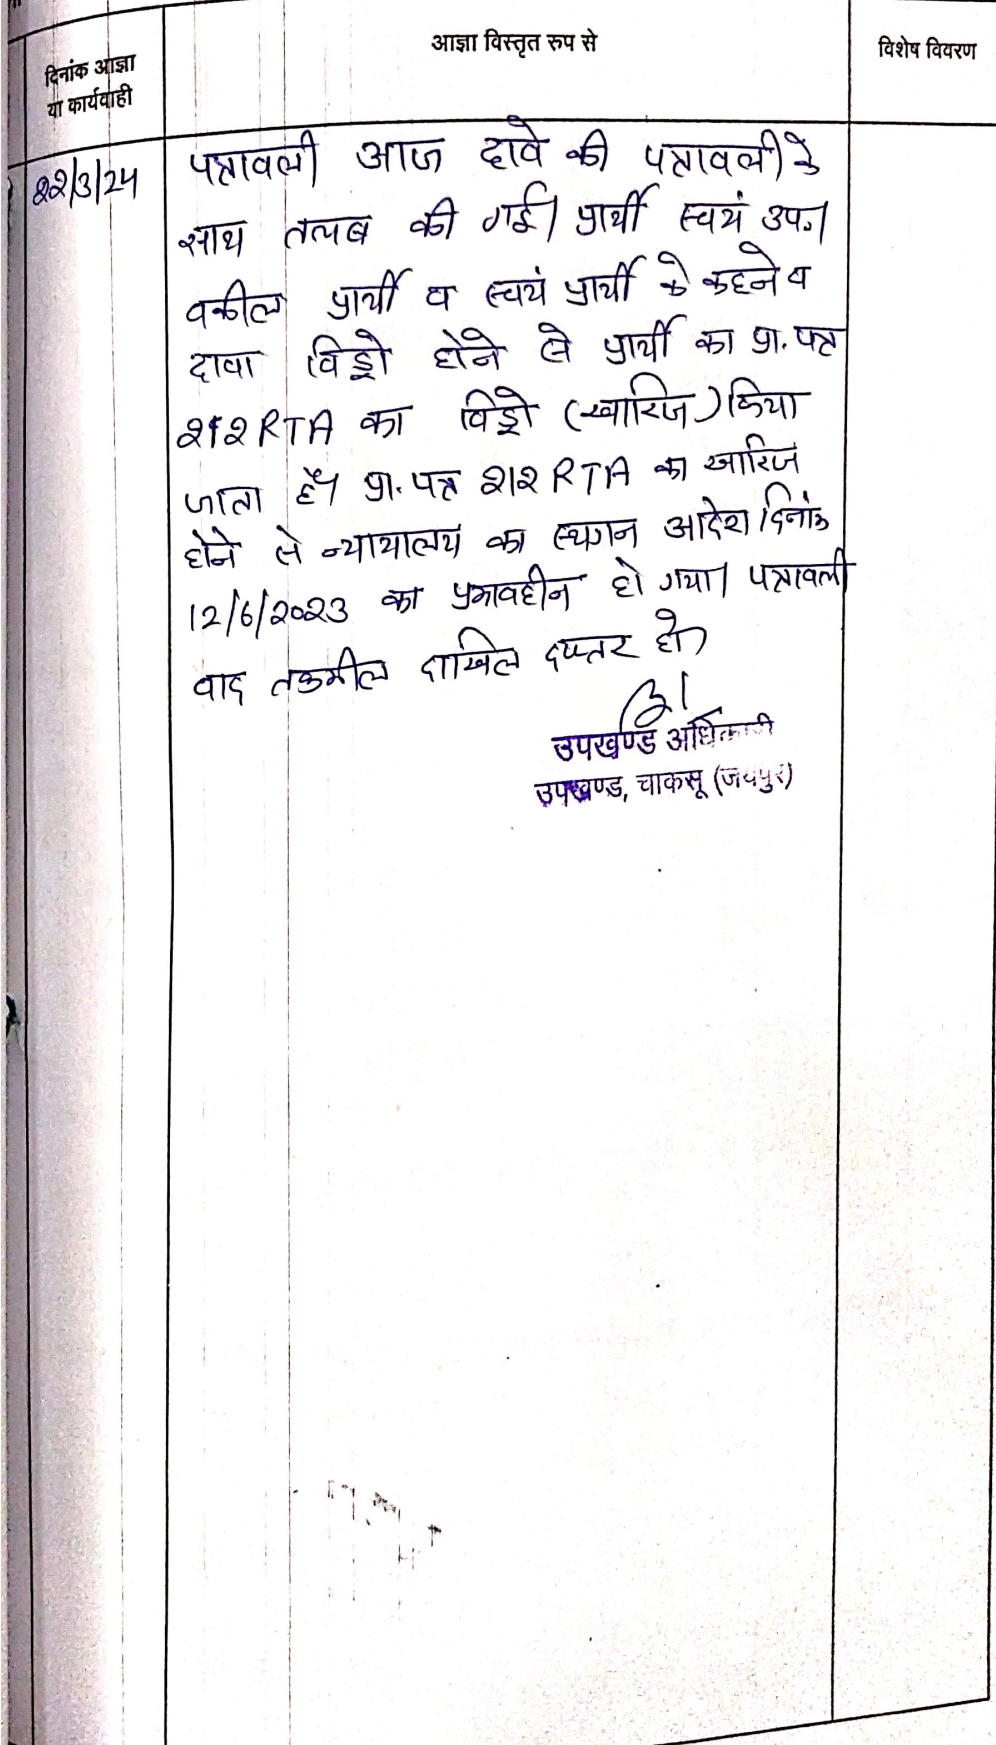 दिनांक आज्ञा
या कार्यवाही
आज्ञा विस्तृत रुप से
विशेष विवरण
22/3/24
पत्रावली आज दावे की पत्रावली के
साथ तलब की गई। प्रार्थी स्वयं उप.।
वकील प्रार्थी व स्वयं प्रार्थी के कहने व
दावा विड्रो होने से प्रार्थी का प्रा. पत्र
212 RTA का विड्रो (खारिज) किया
जाता है। प्रा. पत्र 212 RTA का खारिज
होने से न्यायालय का स्थगन आदेश दिनांक
12/6/2023 का प्रभावहीन हो गया। पत्रावली
वाद तकमील दाखिल दफ्तर हो।
उपखण्ड अधिकारी
उपखण्ड, चाकसू (जयपुर)